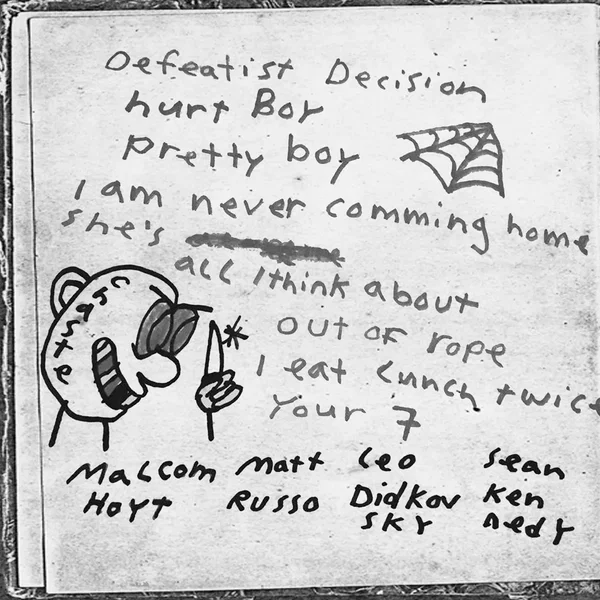 Defeatist Decision
hurt Boy
pretty boy
I am never comming home
she's
all I think about
out of rope
I eat lunch twice
Your 7
chaste
Malcom Hoyt
Matt Russo
Leo Didkovsky
Sean Kennedy